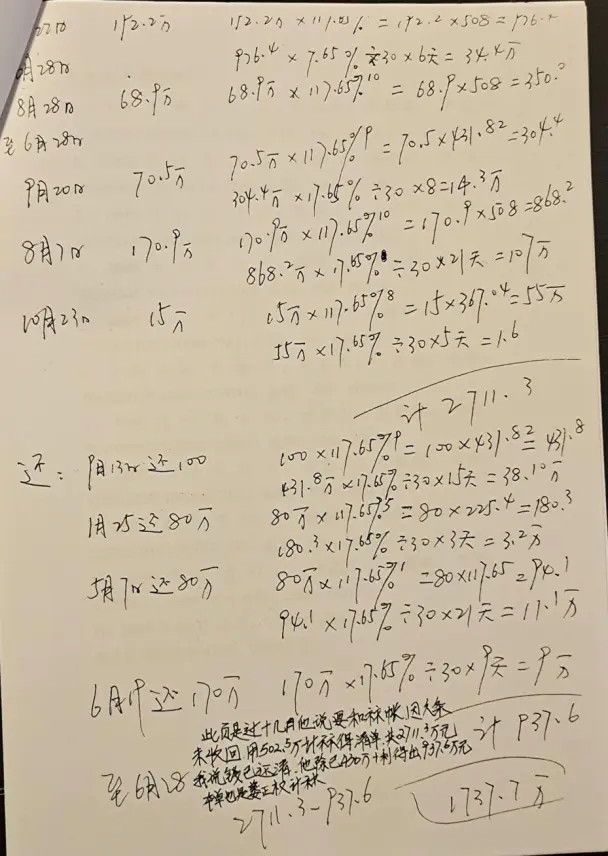 192.2万 192.2万×117.65%=192.2×508=976.4
976.4×7.65%÷30×6天=34.4万
8月28日 68.9万 68.9万×117.65%10=68.9×508=350.0
至6月28日
9月20日 70.5万 70.5万×117.65%9=70.5×431.82=304.4
304.4万×17.65%÷30×8=14.3万
8月7日 170.9万 170.9万×117.65%10=170.9×508=868.2
868.2万×17.65%÷30×21天=107万
10月23日 15万 15万×117.65%8=15×367.04=55万
55万×17.65%÷30×5天=1.6
计2711.3
还:9月13日还100 100×117.65%9=100×431.82=431.8
431.8万×17.65%÷30×15天=38.10万
1月25还80万 80万×117.65%5=80×225.4=180.3
180.3×17.65%÷30×3天=3.2万
5月7日还80万 80万×117.65%1=80×117.65=94.1
94.1×17.65%÷30×21天=11.1万
6月19还170万 170万×17.65%÷30×9天=9万
此页是过十几月他说要和 帐因欠条
未收回用502.5万计 得清单共2711.3万元
我说钱已还清.他除已430万+利得出937.6万元
计937.6
至6月28
2711.3-937.6
1737.7万